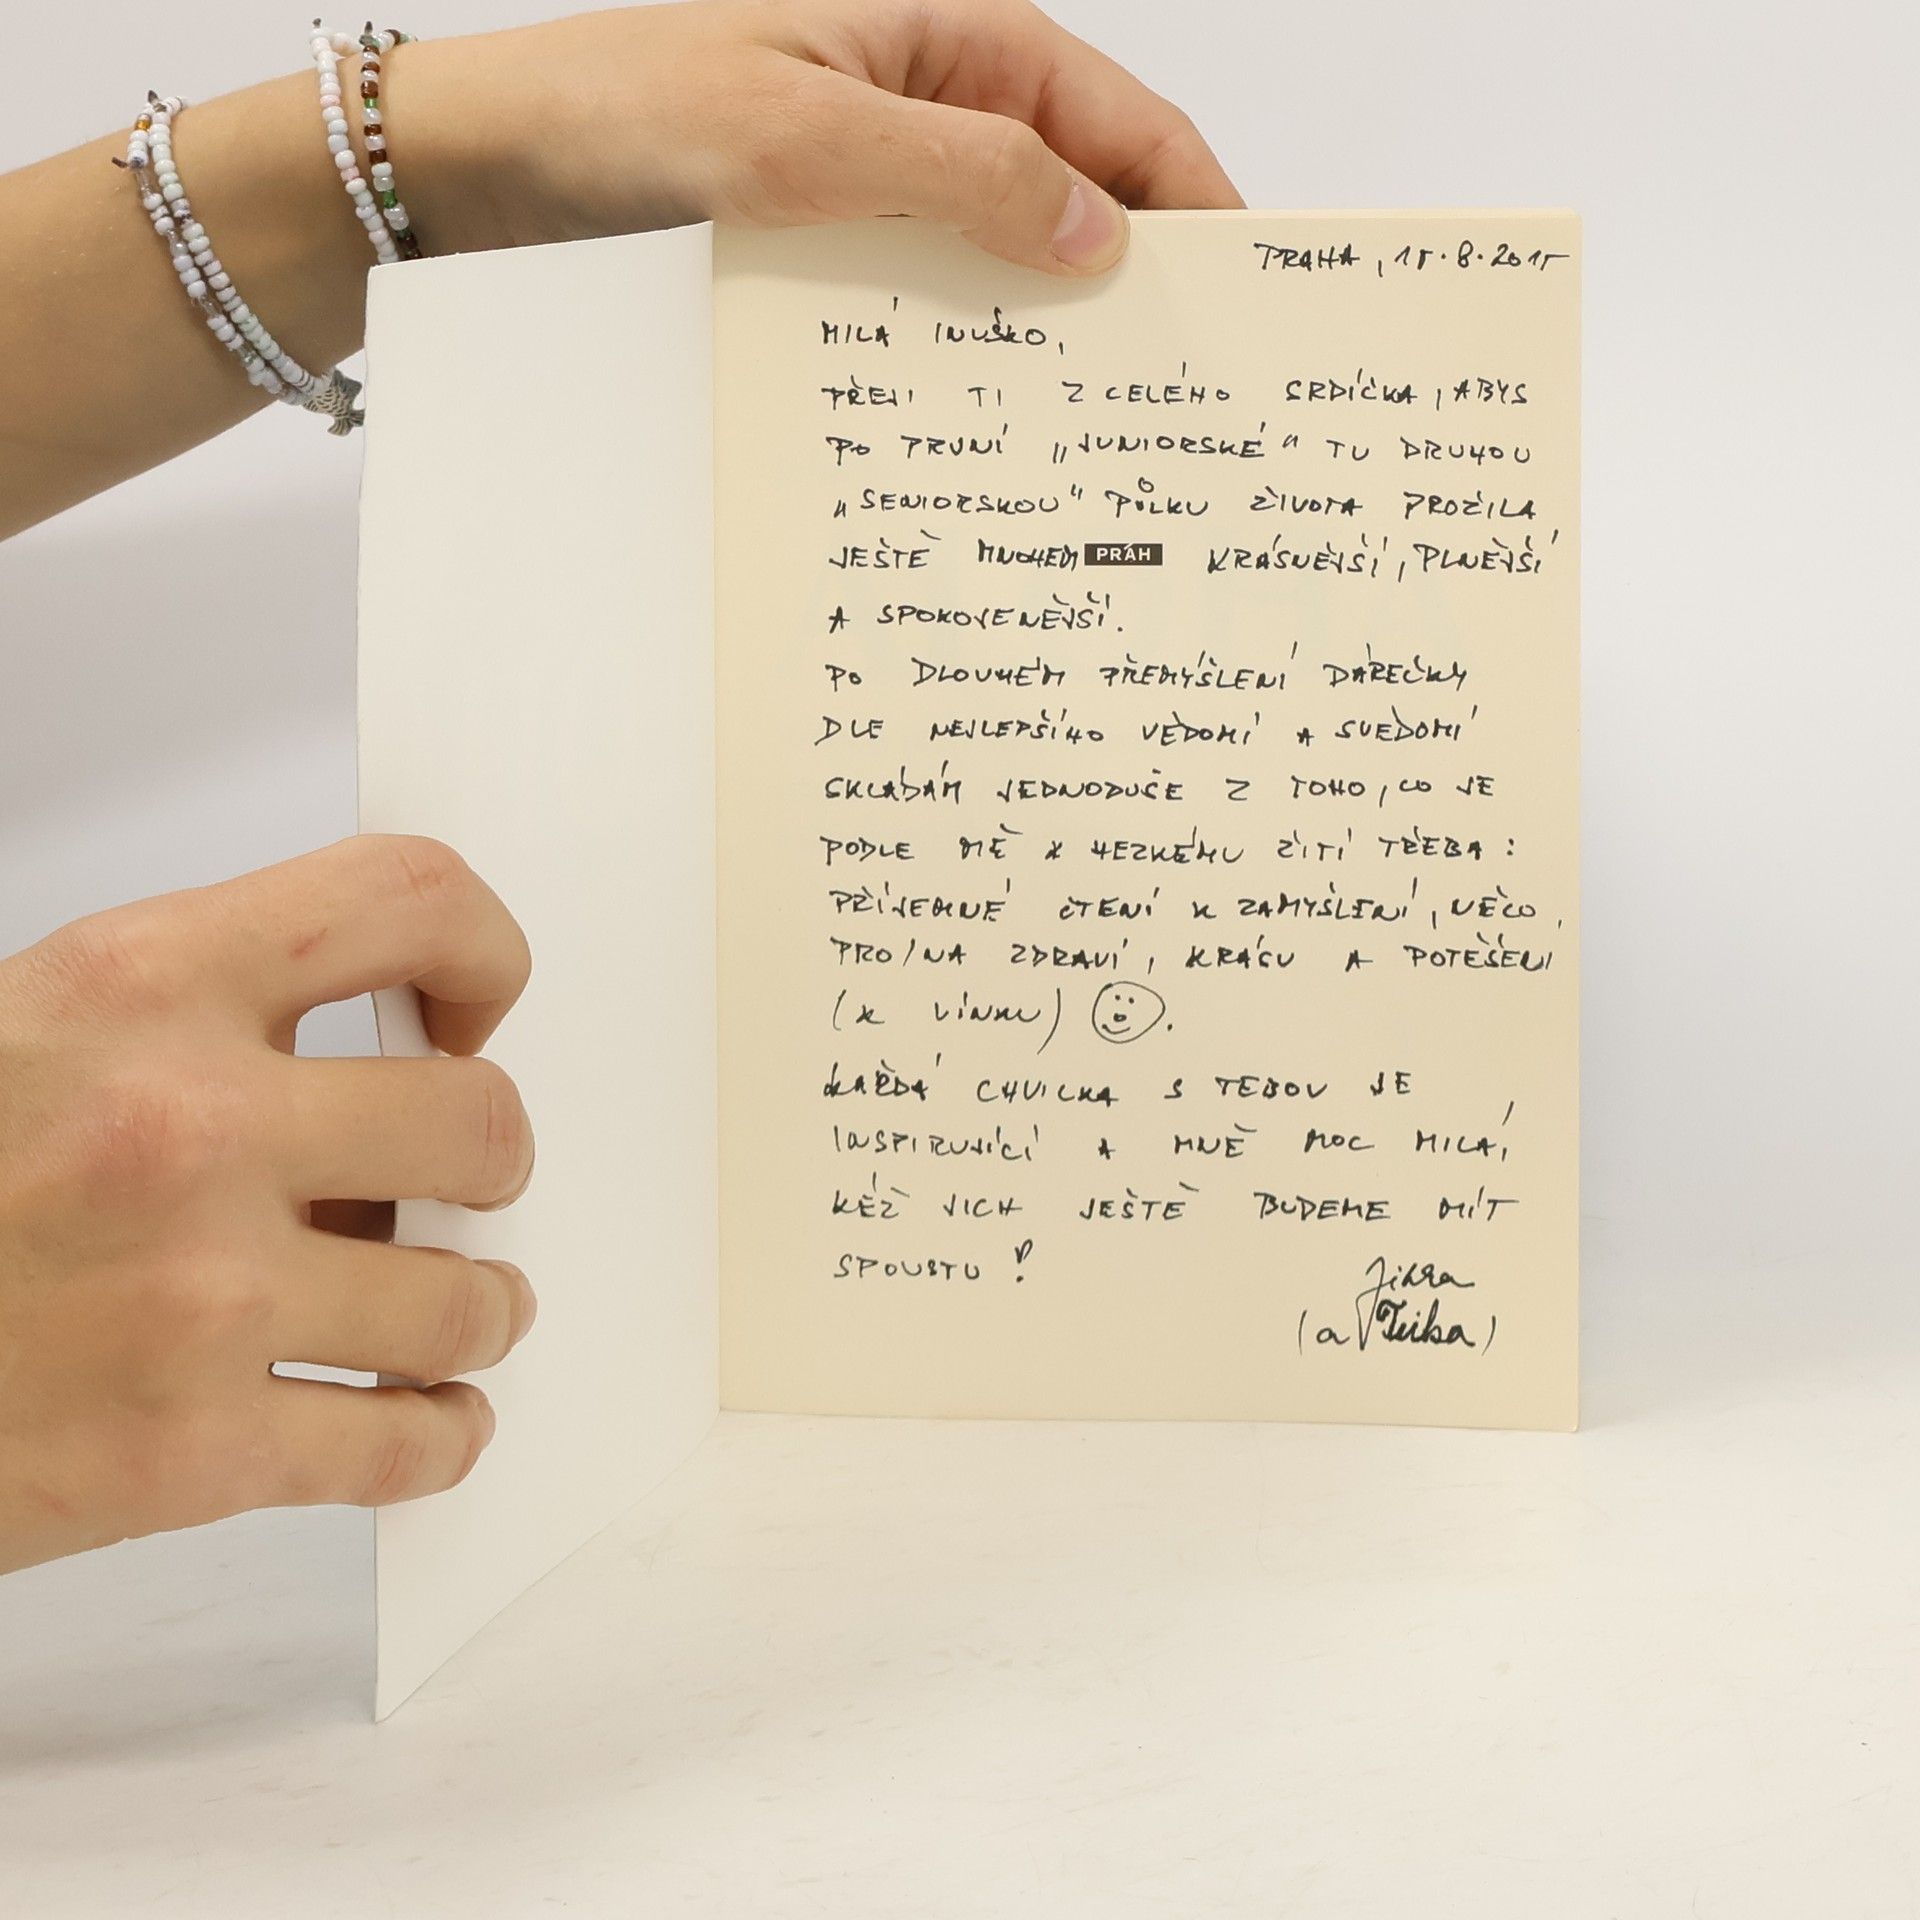 PRAHA, 15.8.2015
MILÁ INUŠKO,
PŘEJI TI Z CELÉHO SRDÍČKA, ABYS
PO PRVNÍ „JUNIORSKÉ" TU DRUHOU
„SENIORSKOU" PŮLKU ŽIVOTA PROŽILA
JEŠTĚ MNOHEM PRÁH KRÁSNĚJŠÍ, PLNĚJŠÍ
A SPOKOJENĚJŠÍ.
PO DLOUHÉM PŘEMÝŠLENÍ DÁREČKY
DLE NEJLEPŠÍHO VĚDOMÍ A SVĚDOMÍ
SKLÁDÁM JEDNODUŠE Z TOHO, CO JE
PODLE MĚ K HEZKÉMU ŽITÍ TŘEBA:
PŘÍJEMNÉ ČTENÍ K ZAMYŠLENÍ, NĚCO
PRO/NA ZDRAVÍ, KRÁSU A POTĚŠENÍ
(K VÍNKU) .
KAŽDÁ CHVILKA S TEBOU JE
INSPIRUJÍCÍ A MNĚ MOC MILÁ,
KÉŽ JICH JEŠTĚ BUDEME MÍT
SPOUSTU!
(a )